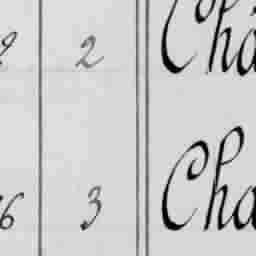 2 2 Cha
6 3 Cha